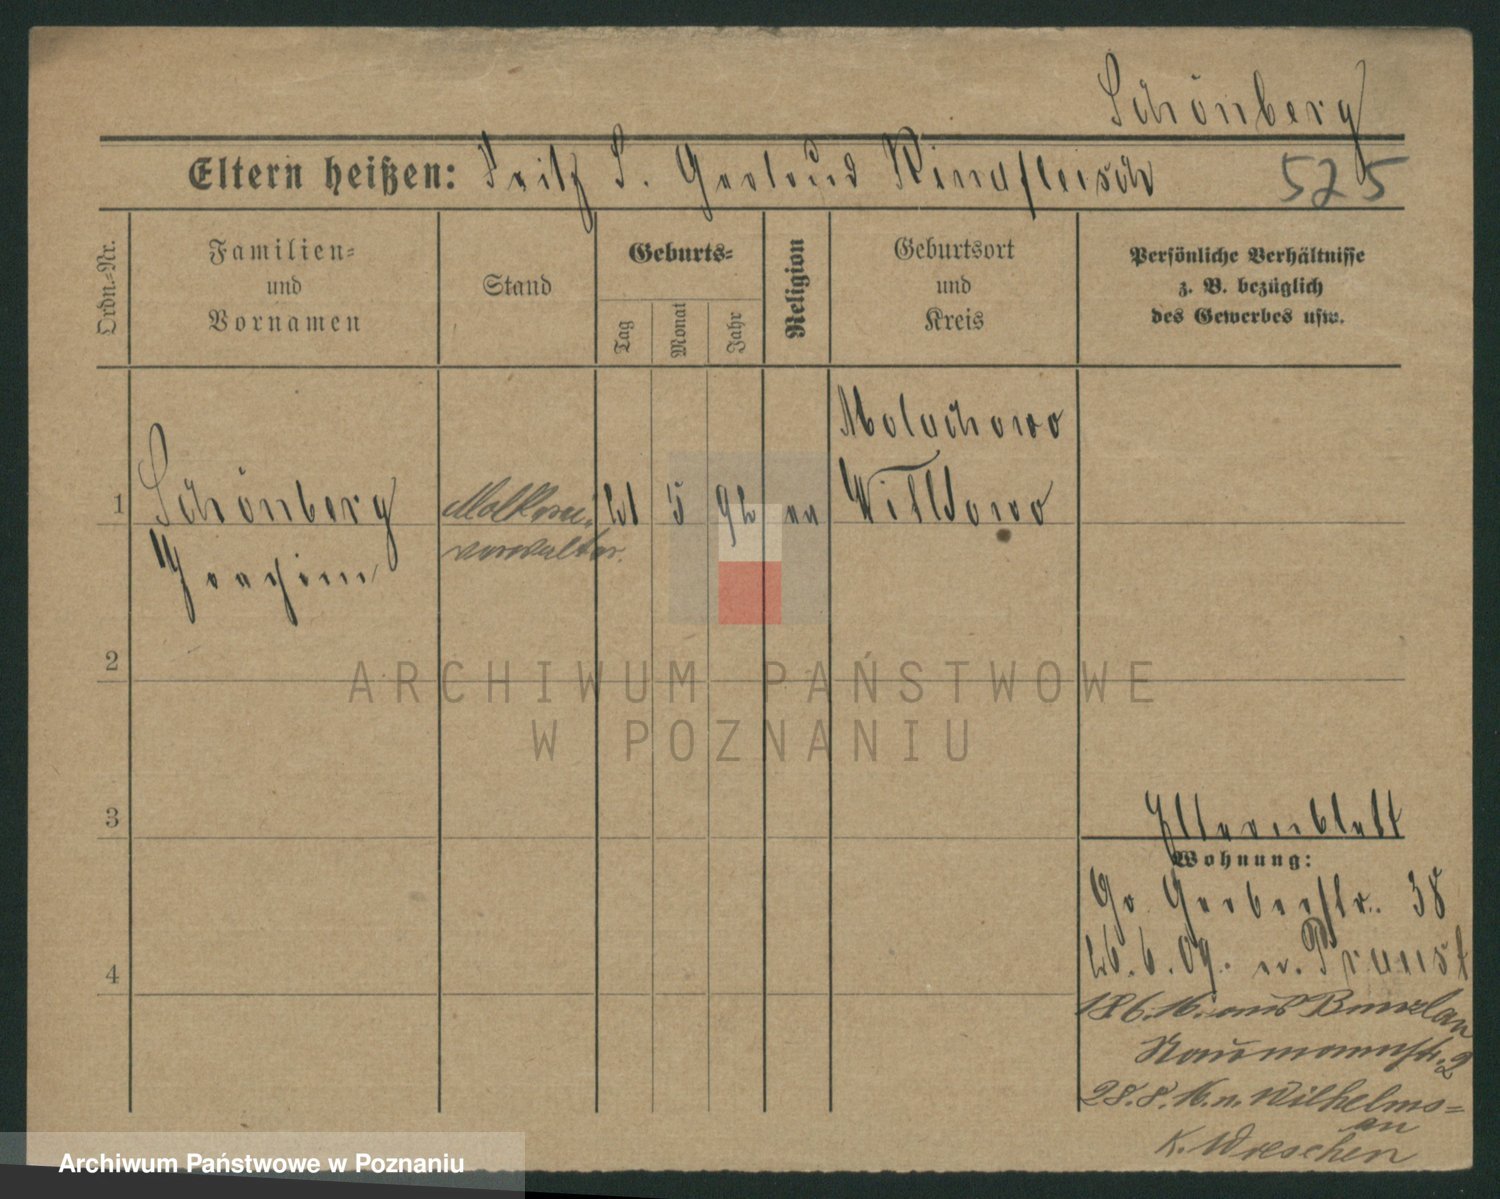 Schönberg
Eltern heißen: Fritz S. Gertrud Rindfleisch 525
Ordn.-Nr.
Familien-
und
Vornamen
Stand
Geburts-
Tag
Monat
Jahr
Religion
Geburtsort
und
Kreis
Persönliche Verhältnisse
z. B. bezüglich
des Gewerbes usw.
1
Schönberg
Joachim
Molkerei-
verwalter.
21
5
92
ev
Malachowo
Wittkowo
2
ARCHIWUM PAŃSTWOWE
W POZNANIU
3
Elternblatt
Wohnung:
Gr. Gerberstr. 38
26.6.09. n. Praust
4
18.6.16. aus Bunzlau
Naumannstr. 2
28.8.16. n. Wilhelms=
au
K. Wreschen
Archiwum Państwowe w Poznaniu